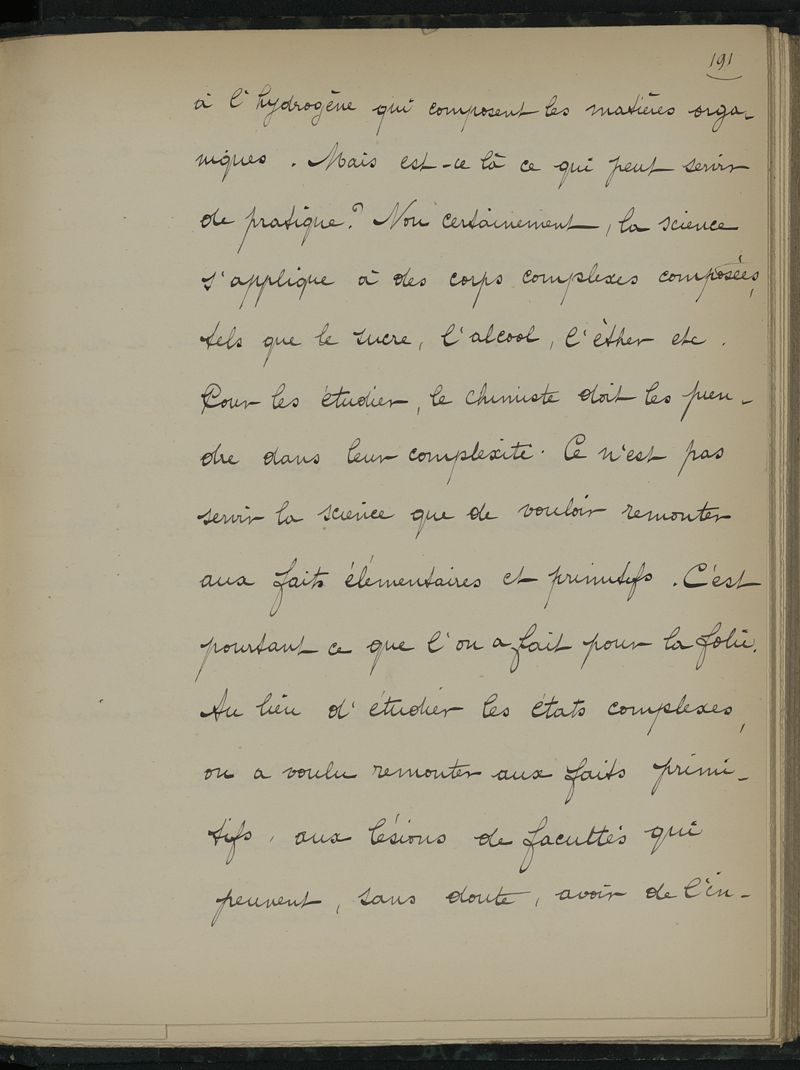 191
à l'hydrogène qui composent les matières orga-
niques. Mais est-ce là ce qui peut servir
de pratique? Non certainement, la science
s'applique à des corps complexes composées,
tels que le sucre, l'alcool, l'éther etc.
Pour les étudier, le chimiste doit les pren-
dre dans leur complexité. Ce n'est pas
servir la science que de vouloir remonter
aux faits élémentaires et primitifs. C'est
pourtant ce que l'on a fait pour la folie.
Au lieu d'étudier les états complexes,
on a voulu remonter aux faits primi-
tifs, aux lésions de facultés qui
peuvent, sans doute, avoir de l'in-